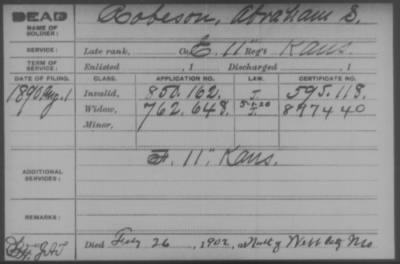 DEAD
NAME OF SOLDIER: Robeson, Abraham S.
SERVICE: Late rank, Co. E. 11" Reg't Kans.
TERM OF SERVICE: Enlisted , 1 Discharged , 1
DATE OF FILING. CLASS. APPLICATION NO. LAW. CERTIFICATE NO.
1890 Aug. 1 Invalid, 850.162. 595.118.
Widow, 762.648. 897440
Minor,
F. 11" Kans.
ADDITIONAL SERVICES:
REMARKS:
Died Feby 26, 1902, at North of Webb City Mo